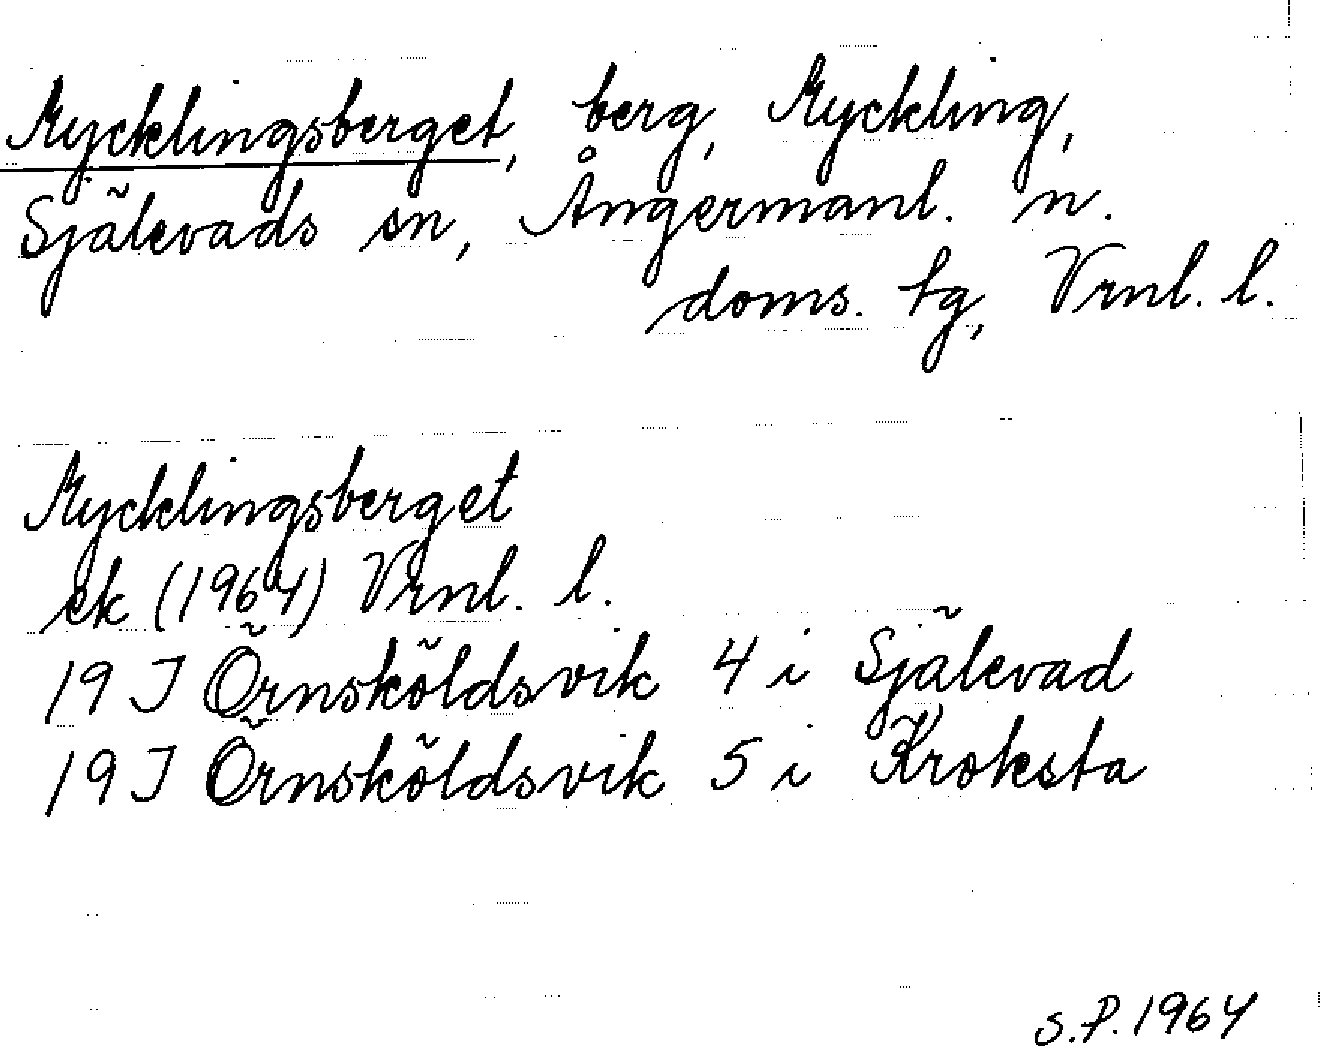 Mycklingsberget, berg, Myckling,
Själevads sn, Ångermanl. n.
doms. tg, Vrnl. l.
Mycklingsberget
ek (1964) Vrnl. l.
19 I Örnsköldsvik 4 i Själevad
19 I Örnsköldsvik 5 i Kroksta
S.P. 1964